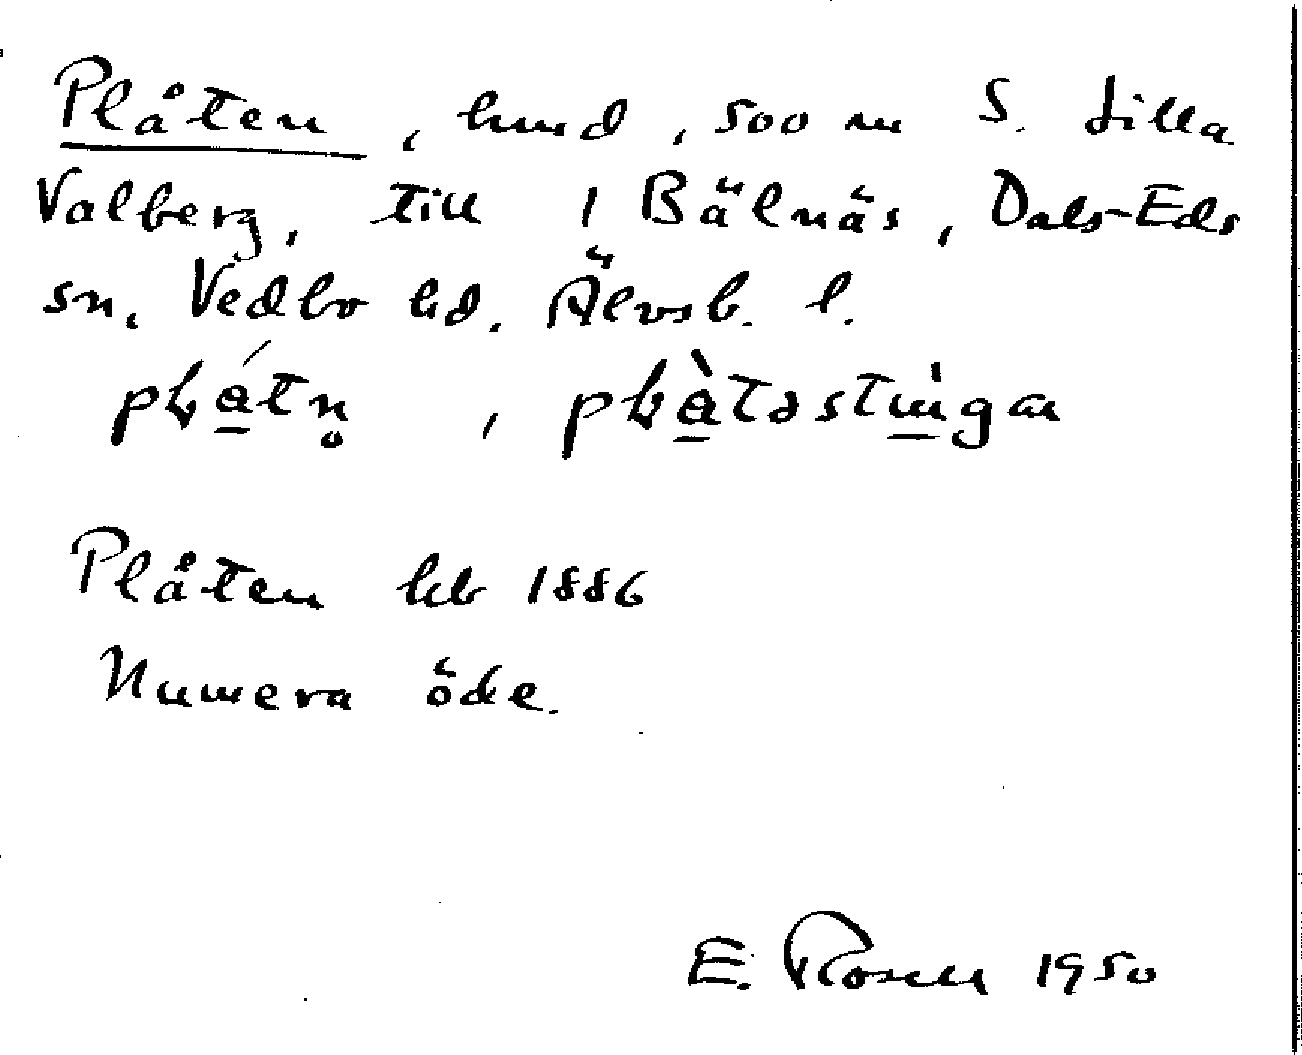 Plåten, hmd, 500 m S. Lilla
Valberg, till 1 Bälnäs, Dals-Eds
sn, Vedbo hd. Älvsb. l.
Plåten hcb 1886
Numera öde.
E. Rosell 1950